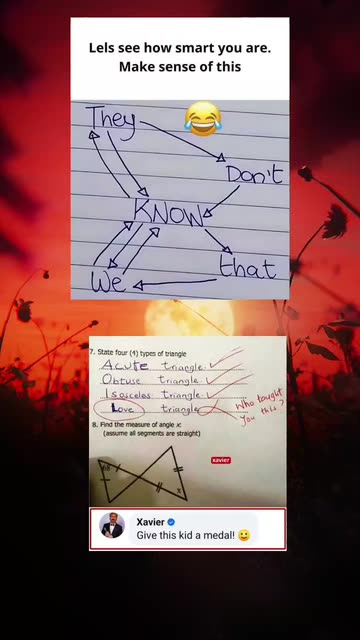 Lels see how smart you are.
Make sense of this
They
Don't
KNOW
that
We
7. State four (4) types of triangle
Acute triangle
Obtuse triangle
Isosceles triangle
Love triangle
Who taught
you this?
8. Find the measure of angle x
(assume all segments are straight)
68
x
xavier
Xavier
Give this kid a medal!